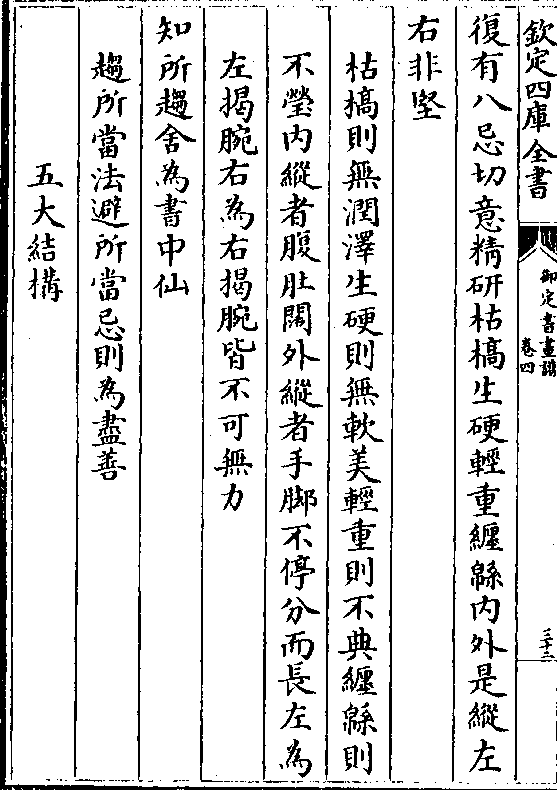 欽定四庫全書
御定書畫譜
卷四
三十二
復有八忌切意精研枯槁生硬輕重纏緜内外是縱左
右非堅
枯槁則無潤澤生硬則無軟美輕重則不典纏緜則
不瑩内縱者腹肚闊外縱者手脚不停分而長左為
左揭腕右為右揭腕皆不可無力
知所趨舍為書中仙
趨所當法避所當忌則為盡善
五大結構